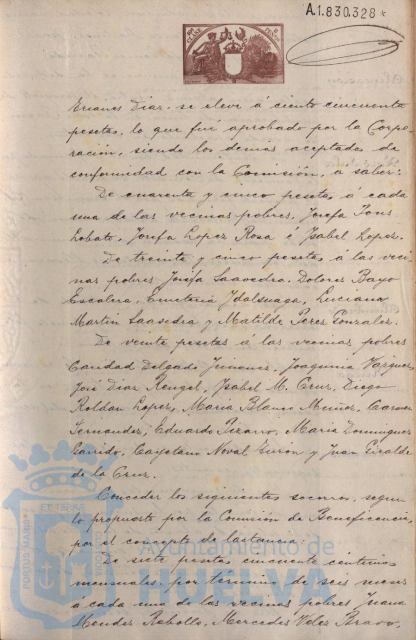 A.1.830.328*
Díaz, se eleve á ciento cincuenta
pesetas, lo que fué aprobado por la Corpo-
ración, siendo los demás aceptados de
conformidad con la Comisión, á saber:
De cuarenta y cinco pesetas, á cada
una de las vecinas pobres, Josefa
Lobato, Josefa Lopez Rosa é Isabel Lopez.
De treinta y cinco pesetas, á las veci-
nas pobres Josefa Saavedra, Dolores Bayo
Escalera, Emeteria Idalsuaga, Luciana
Martin Saavedra y Matilde Perez Gonzalez.
De veinte pesetas á las vecinas pobres
Caridad Delgado Jimenez, Joaquina Vazquez,
José Diaz Rengel, Isabel M. Cruz, Diego
Roldan Lopez, Maria Blanco Muñoz, Carmen
Fernandez, Eduardo Pizarro, Maria Dominguez
Garrido, Cayetano Noval y Juan
de la Cruz.
Conceder los siguientes socorros, segun
lo propuesto por la Comisión de Beneficencia
por el concepto de lactancia:
De siete pesetas cincuenta centimos
mensuales, por término de seis meses
á cada una de las vecinas pobres Juana
Mendez Rebollo, Mercedes Velez Bravo,
PORTUS MARIS
ET TERRAE
Ayuntamiento de
HUELVA